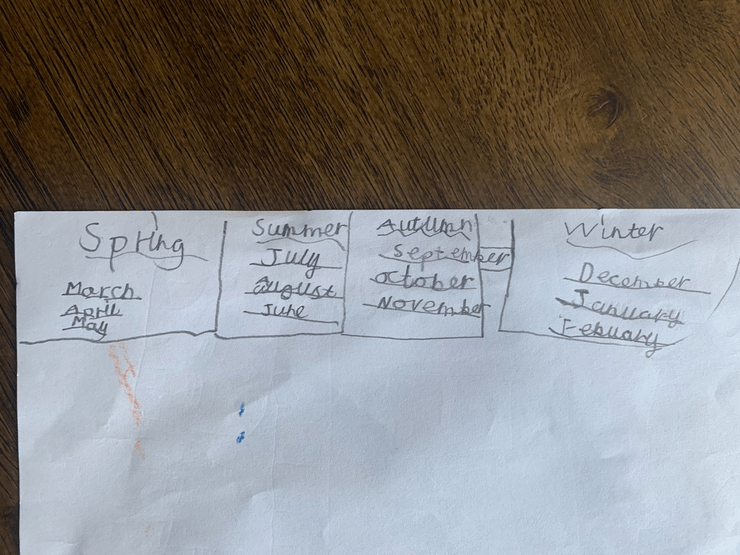 Spring
March
April
May
Summer
July
august
June
Autumn
September
october
November
Winter
December
January
Febuary